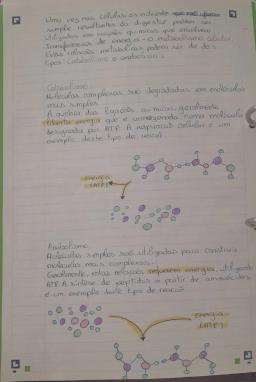 Uma vez nas células os nutrientes
simples resultantes da digestão podem ser
utilizados em reações químicas que envolvem
transferências de energia - o metabolismo celular.
Estas reações metabólicas podem ser de dois
tipos: catabolismo e anabolismo.
Catabolismo:
Moléculas complexas são degradadas em moléculas
mais simples.
A quebra das ligações químicas, geralmente
liberta energia que é armazenada numa molécula
designada por ATP. A respiração celular é um
exemplo deste tipo de reação.
energia
(ATP)
Anabolismo:
Moléculas simples são utilizadas para construir
moléculas mais complexas.
Geralmente, estas reações requerem energia, utilizando
ATP. A síntese de péptidos a partir de aminoácidos
é um exemplo deste tipo de reação.
energia
(ATP)